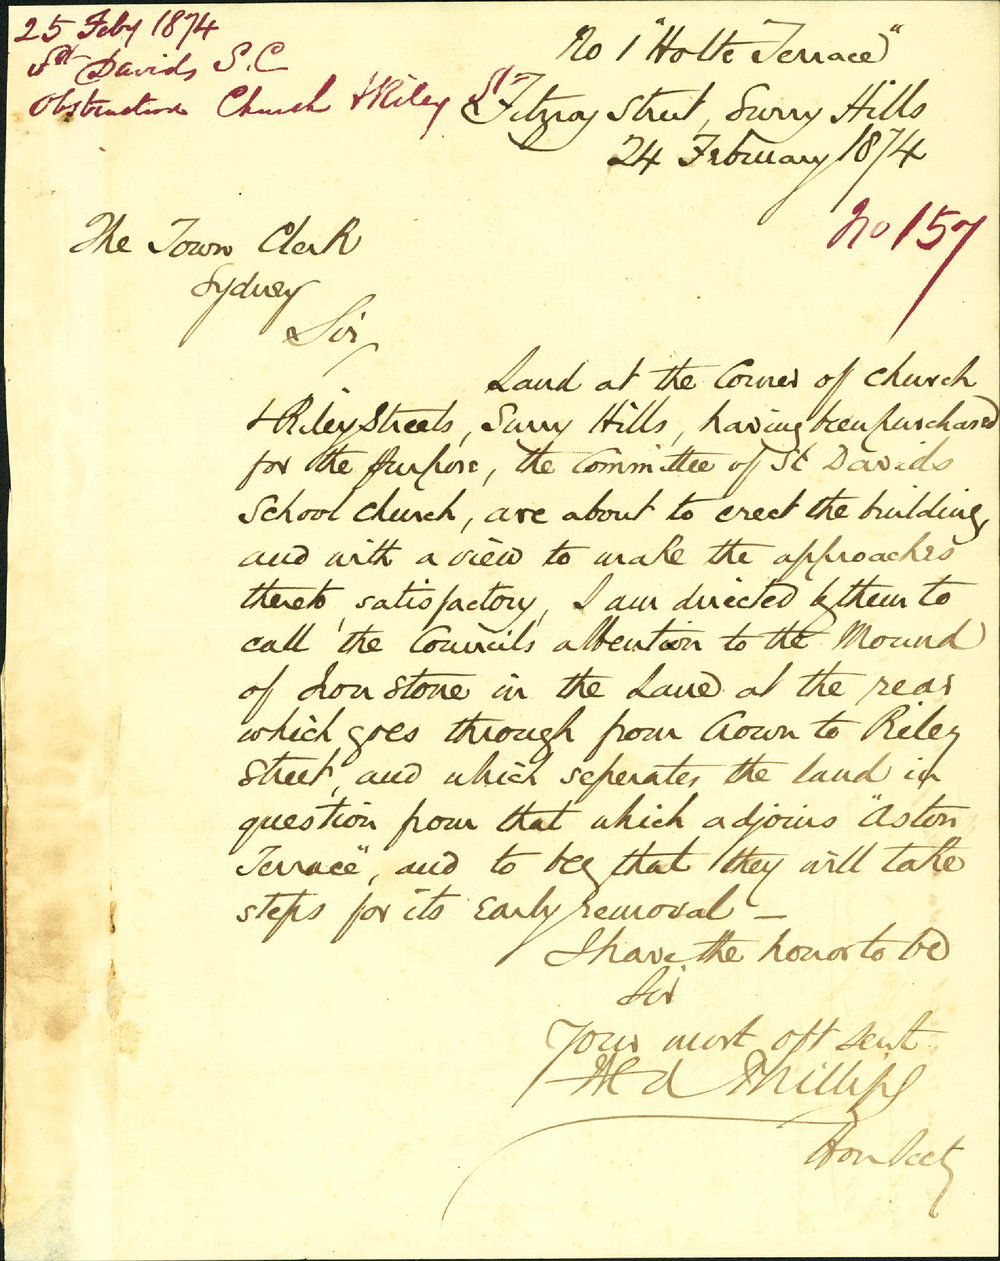 25 Feby 1874
St Davids S.C
Obstruction Church & Riley St
No 1 "Holte Terrace"
Fitzroy Street, Surry Hills
24 February 1874
No 157
The Town Clerk
Sydney
Sir,
Land at the Corner of Church
& Riley Streets, Surry Hills, having been purchased
for the purpose, the Committee of St Davids
School Church, are about to erect the building,
and with a view to make the approaches
thereto, satisfactory, I am directed by them to
call the Councils attention to the Mound
of Iron Stone in the Lane at the rear
which goes through from Crown to Riley
Street, and which seperates, the land in
question from that which adjoins "Aston
Terrace", and to beg that they will take
steps for its early removal —
I have the honor to be
Sir
Your most obt sevt
Phillips
Hon Secty